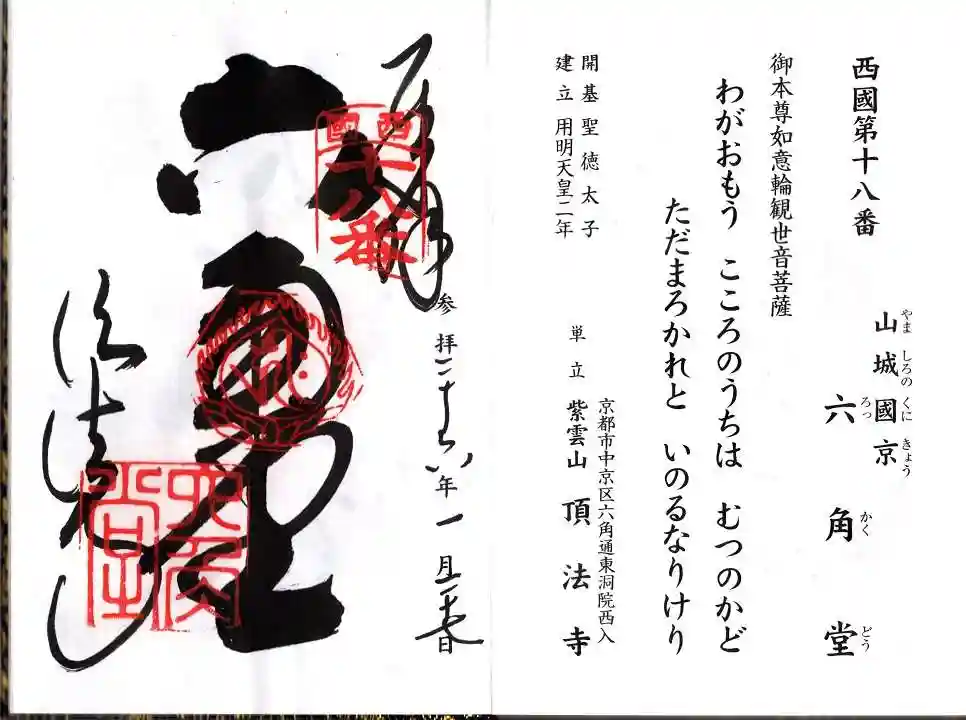 西國第十八番
やましろのくにきょう
山城國京
ろっかくどう
六角堂
御本尊如意輪観世音菩薩
わがおもう こころのうちは むつのかど
ただまろかれと いのるなりけり
開基聖徳太子
建立 用明天皇二年
京都市中京区六角通東洞院西入
単立 紫雲山 頂法寺
奉拝
参拝二十六年一月 日
西國十八番
六角堂
頂法寺